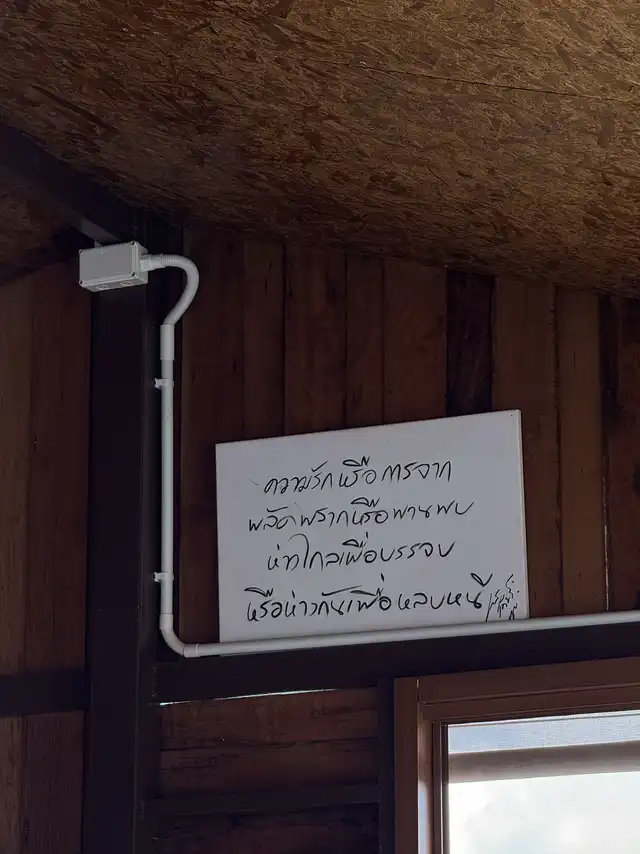 ความรักหรือการจาก
พลัดพรากหรือพานพบ
ห่างไกลเพื่อบรรจบ
หรือห่างกันเพื่อหลบหนี